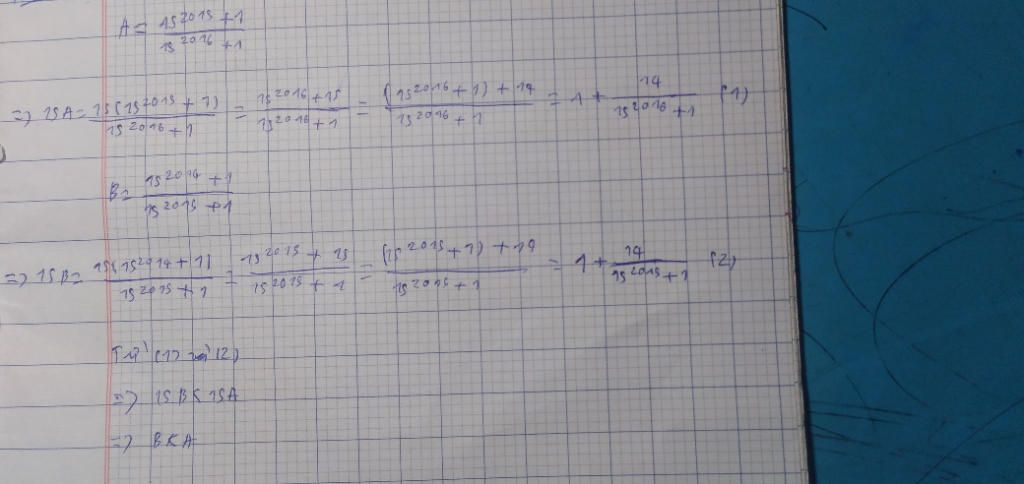 A = \frac{15^{2015}+1}{15^{2016}+1}
=> 15A = \frac{15(15^{2015}+1)}{15^{2016}+1} = \frac{15^{2016}+15}{15^{2016}+1} = \frac{(15^{2016}+1)+14}{15^{2016}+1} = 1 + \frac{14}{15^{2016}+1} (1)
B = \frac{15^{2014}+1}{15^{2015}+1}
=> 15B = \frac{15(15^{2014}+1)}{15^{2015}+1} = \frac{15^{2015}+15}{15^{2015}+1} = \frac{(15^{2015}+1)+14}{15^{2015}+1} = 1 + \frac{14}{15^{2015}+1} (2)
Từ (1) và (2)
=> 15B < 15A
=> B < A